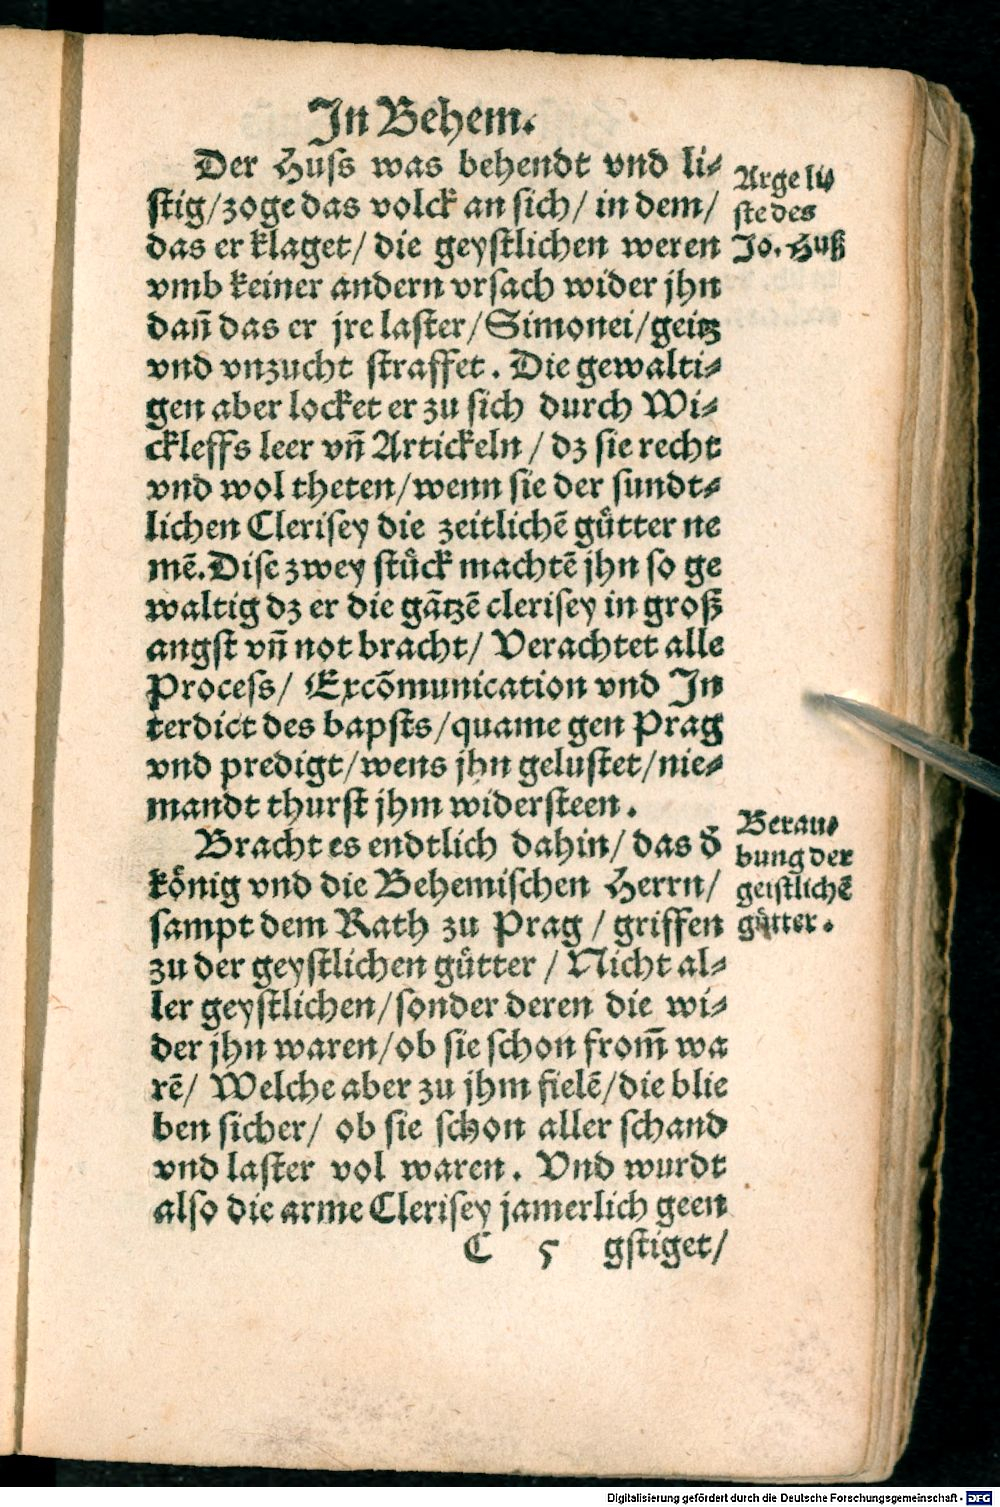 In Behem.
Der Huſs was behendt vnd li⸗
ſtig/zoge das volck an ſich/ in dem/
das er klaget/ die geyſtlichen weren
vmb keiner andern vrſach wider jhn
dañ das er jre laſter/Simonei/geitz
vnd vnzucht ſtraffet. Die gewalti⸗
gen aber locket er zu ſich durch Wi⸗
ckleffs leer vñ Artickeln/ dz ſie recht
vnd wol theten/wenn ſie der ſundt⸗
lichen Cleriſey die zeitlichẽ guͤtter ne
mẽ.Diſe zwey ſtuͤck machtẽ jhn ſo ge
waltig dz er die gãtzẽ cleriſey in groß
angſt vñ not bracht/ Verachtet alle
Proceſs/ Excõmunication vnd In
terdict des bapſts/quame gen Prag
vnd predigt/wens jhn geluſtet/nie⸗
mandt thurſt jhm widerſteen.
Bracht es endtlich dahin/ das d̃
koͤnig vnd die Behemiſchen Herrn/
ſampt dem Rath zu Prag/ griffen
zu der geyſtlichen guͤtter/ Nicht al⸗
ler geyſtlichen/ſonder deren die wi⸗
der jhn waren/ob ſie ſchon from̃ wa
rẽ/ Welche aber zu jhm fielẽ/die blie
ben ſicher/ ob ſie ſchon aller ſchand
vnd laſter vol waren. Vnd wurdt
alſo die arme Cleriſey jamerlich geen
C 5 gſtiget/
Arge li⸗
ſte des
Jo. Huß
Berau⸗
bung der
geiſtlichẽ
guͤtter.
Digitalisierung gefördert durch die Deutsche Forschungsgemeinschaft - DFG